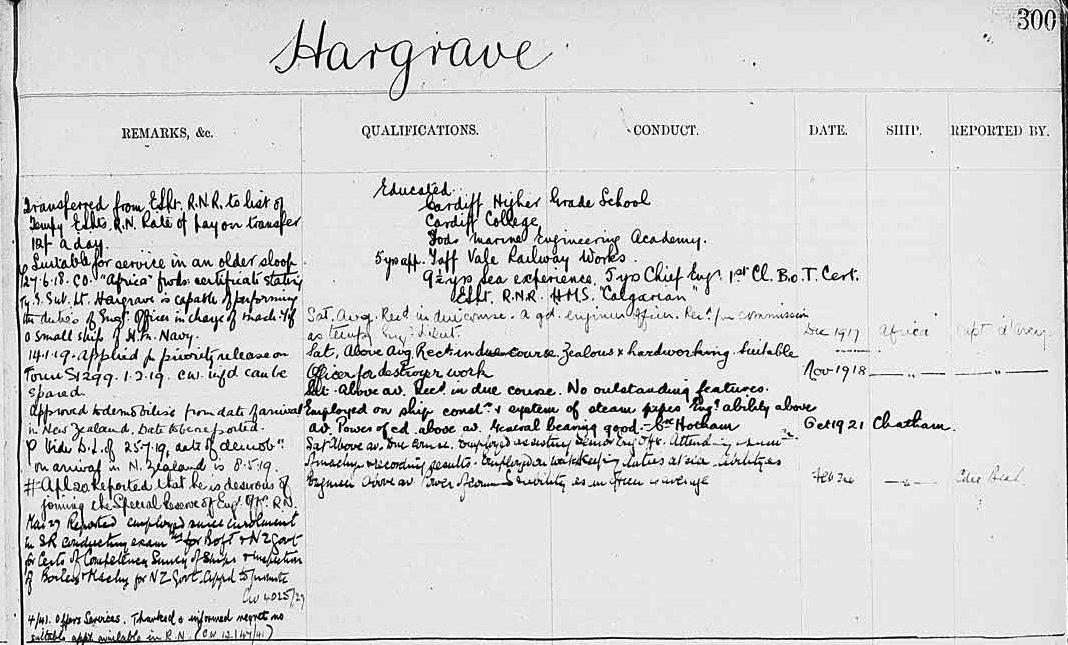 300
Hargrave
REMARKS, &c.
QUALIFICATIONS.
CONDUCT.
DATE.
SHIP.
REPORTED BY.
Transferred from Esflt. R.N.R. to list of
Tempy Eslts. R.N. Rate of pay on transfer
12/- a day.
Suitable for service in an older sloop
27.6.18. CO. "Africa" fwds. certificate stating
Ty. E. Sub. Lt. Hargrave is capable of performing
the duties of Engr. Officer in charge of Machy of
small ships of H.M. Navy.
14.1.19. Applied for priority release on
Form S1299. 1.2.19. CW. infd can be
spared.
Approved to demobilise from date of arrival
in New Zealand. Date to be reported.
Vide D.L. of 25.7.19, date of demobn.
on arrival in N. Zealand is 8.5.19.
# Apl 20. Reported that he is desirous of
joining the Special Reserve of Engr. Offrs. R.N.
Mar 27 Reported employed since enrolment
in SR conducting exams for BofT & NZ Govt
for Certs of Competency Survey of Ships & inspection
of Boilers & Machy for NZ Govt. Appd to
CW 4025/27
4/41. Offers Services. Thanked & informed regret no
suitable appt available in R.N. (CW 12147/41)
Educated.
Cardiff Higher Grade School
Cardiff College,
Marine Engineering Academy.
5 yrs app. Taff Vale Railway Works.
9½ yrs sea experience. 5 yrs Chief Engr. 1st Cl. B.o.T. Cert.
Esflt. R.N.R. HMS. "Calgarian"
Sat. Avg. Recd in due course. A gd. engineer officer. Recd for commission
as temp Engr Lieut. Dec 1917 "Africa" Capt
Sat, Above Avg. Recd. in due course. Zealous & hardworking. Suitable
Officer for destroyer work Nov 1918 — " — — " —
Sat. Above av. Recd. in due course. No outstanding features.
Employed on ship constn. & system of steam pipes. Engr. ability above
av. Power of cd. above av. General bearing good. Hotham Oct 1921 Chatham.
Sat Above av. Due course. Employed assisting Senior Engr Offr. Attending
machy & recording results. Employed on watchkeeping duties at sea. Ability as
Engineer Above av Power of comd & ability as an Officer is average Feb — " —